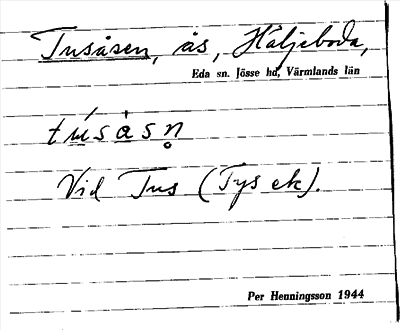 Tusåsen, ås, Häljeboda,
Eda sn. Jösse hd, Värmlands län
tú̲sȧ̀sn̥
Vid Tus (Tys ek).
Per Henningsson 1944